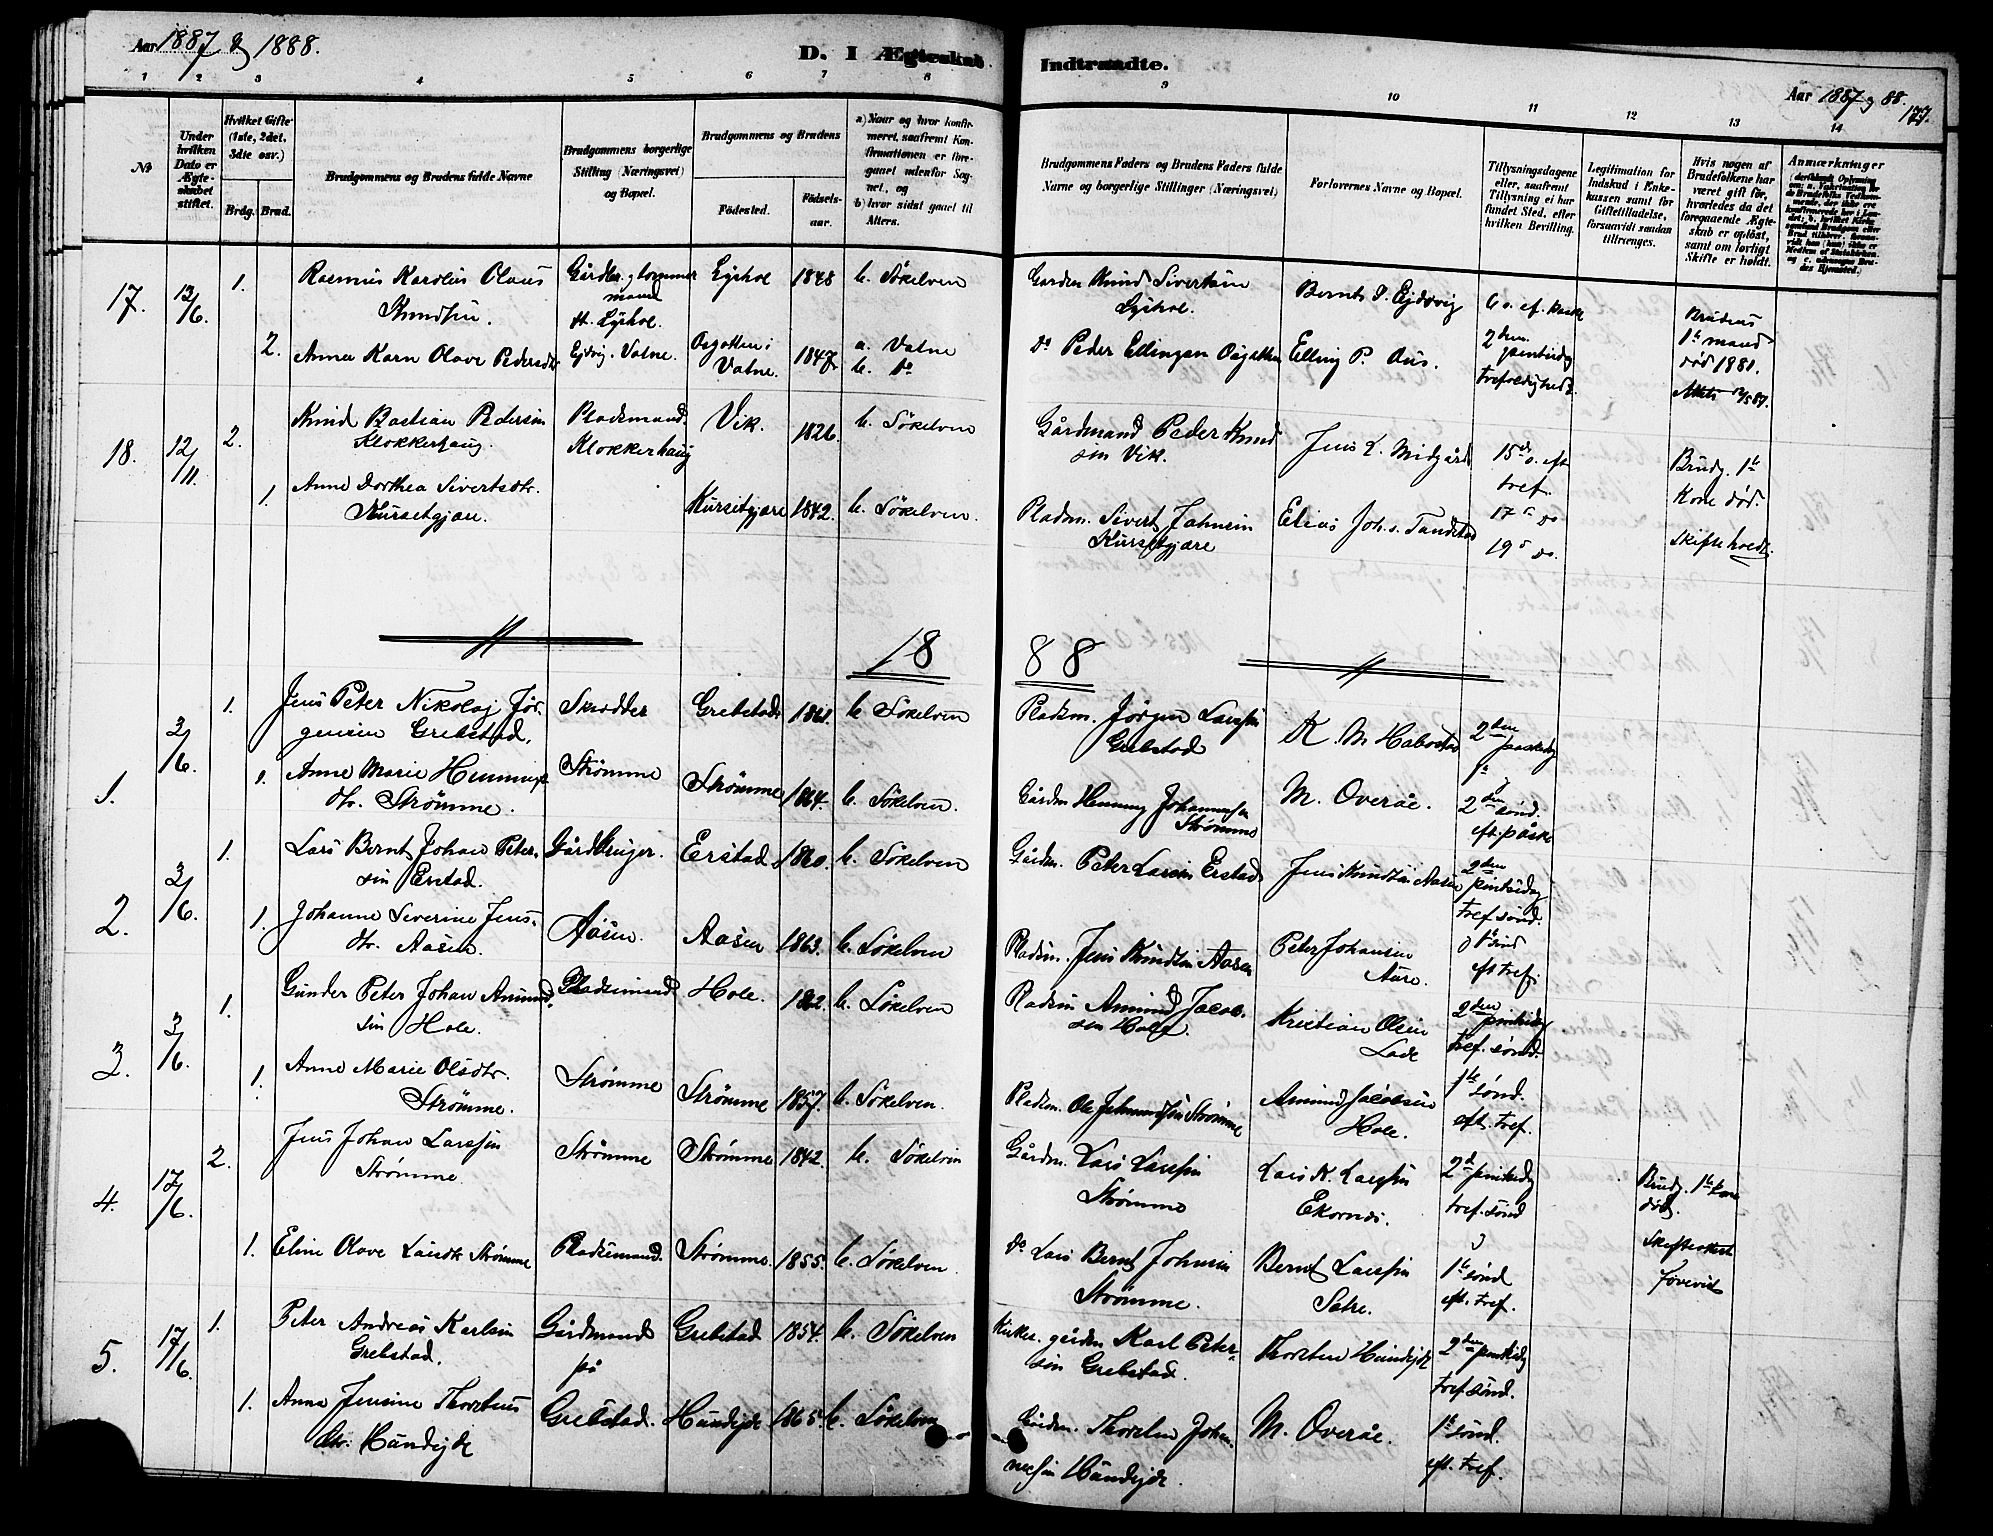 Aar 1887 & 1888.
D. I Ægteskab Indtraadte.
Aar 1887 & 88.
177.
1 2 3 4 5 6 7 8 9 10 11 12 13 14
№
Under hvilken Dato er Ægteskabet stiftet.
Hvilket Gifte (1ste, 2det, 3die osv.)
Brdg. Brud.
Brudgommens og Brudens fulde Navne
Brudgommens borgerlige Stilling (Næringsvei) og Bopæl.
Brudgommens og Brudens
Fødested.
Fødselsaar.
a) Naar og hvor konfirmeret, saafremt Konfirmationen er foregaaet udenfor Sognet, og
b) hvor sidst gaaet til Alters.
Brudgommens Faders og Brudens Faders fulde Navne og borgerlige Stillinger (Næringsvei)
Forlovernes Navne og Bopæl.
Tillysningsdagene eller, saafremt Tillysning ei har fundet Sted, efter hvilken Bevilling.
Legitimation for Indskud i Enkekassen samt for Giftetilladelse, forsaavidt saadan tiltrænges.
Hvis nogen af Brudefolkene har været gift før, hvorledes da det foregaaende Ægteskab er opløst, samt om lovligt Skifte er holdt.
Anmærkninger
17. 12/6. 1. Rasmus Karolus Olaus Knudsen. Lyshol 1848 b. Søkelven
Gårdm. Knud Sivertsen Lyshol. Bernt P. Ejdsvig
2. Anna Karn Olave Pedersdtr Ejdsvig i Vatne. Osgotten i Vatne. 1847. a. Vatne b. do
do Peder Ellingsen Osgotten Elling P. Aus. 2den pintsedag trefoldighed
Brudens 1ste mand død 1881.
18. 12/11. 2. Knud Bastian Pedersen Klokkerhaug. Pladsmand Klokkerhaug Vik. 1826. b. Søkelven
Gårdmand Peder Knudsen Vik. Jens L. Midgård 15de s. eft. tref.
Brudg. 1ste Kone død.
1. Anne Dorthea Sivertsdtr. Kursetgjære. Kursetgjære 1842. b. Søkelven.
Pladsm. Sivert Johnsen Kursetgjære Elias Joh.s. Tandstad 17 do 19 do.
Skifte holdt.
1888
1. 3/6. 1. Jens Peter Nikolaj Jørgensen Grebstad. Skrædder Grebstad 1861. b. Søkelven
Pladsm. Jørgen Larssen Grebstad K. M. Habostad 2den påskedag
1. Anne Marie Hemmingsdtr. Strømme. Strømme Strømme 1864. b. Søkelven.
Gårdm Hemming Johannessen Strømme M. Overåe. 2den sønd. eft. påske
2. 3/6. 1. Lars Bernt Johan Petersen Erstad. Gårdbruger. Erstad 1860. b. Søkelven
Gårdm. Peter Larsen Erstad Jens Knudsen Aasen 2den pintsedag tref. sønd.
1. Johanne Severine Jensdtr. Aasen. Aasen. Aasen 1863. b. Søkelven
Pladsm. Jens Knudsen Aasen Peter Johansen Aure. 1ste sønd eft tref.
3. 3/6. 1. Gunder Peter Johan Amundsen Hole. Pladsemand Hole. 1862 b. Søkelven
Pladsm Amund Jacobsen Hole. Kristian Olsen Lade 2den pintsedag tref. sønd.
1. Anne Marie Olsdtr. Strømme. Strømme Strømme 1857. b. Søkelven.
Pladsm. Ole Johannessen Strømme Amund Jacobsen Hole. 1ste sønd. eft. tref.
4. 17/6. 2. Jens Johan Larssen Strømme. Strømme Strømme 1842. b. Søkelven
Gårdm. Lars Larssen Strømme Lars N. Larssen Ekornes. 2d pintsedag tref. sønd
Brudg. 1ste kone død.
1. Eline Olave Larsdtr Strømme Pladsemand. Strømme. 1855. b. Søkelven.
do Lars Bernt Johnsen Strømme. Bernt Larssen Sætre. 1ste sønd eft. tref.
Skifteattest forevist
5. 17/6. 1. Peter Andreas Karlsen Grebstad. Gårdmand på Grebstad. Grebstad 1854. b. Søkelven
Kirkes. gårdm Karl Petersen Grebstad. Thorsten Hundejde 2den pintsedag tref. sønd.
1. Anna Jensine Thorstensdtr. Hundejde Hundejde 1865. b. Søkelven
Gårdm. Thorsten Johannessen Hundejde. M. Overåe. 1ste sønd. eft. tref.